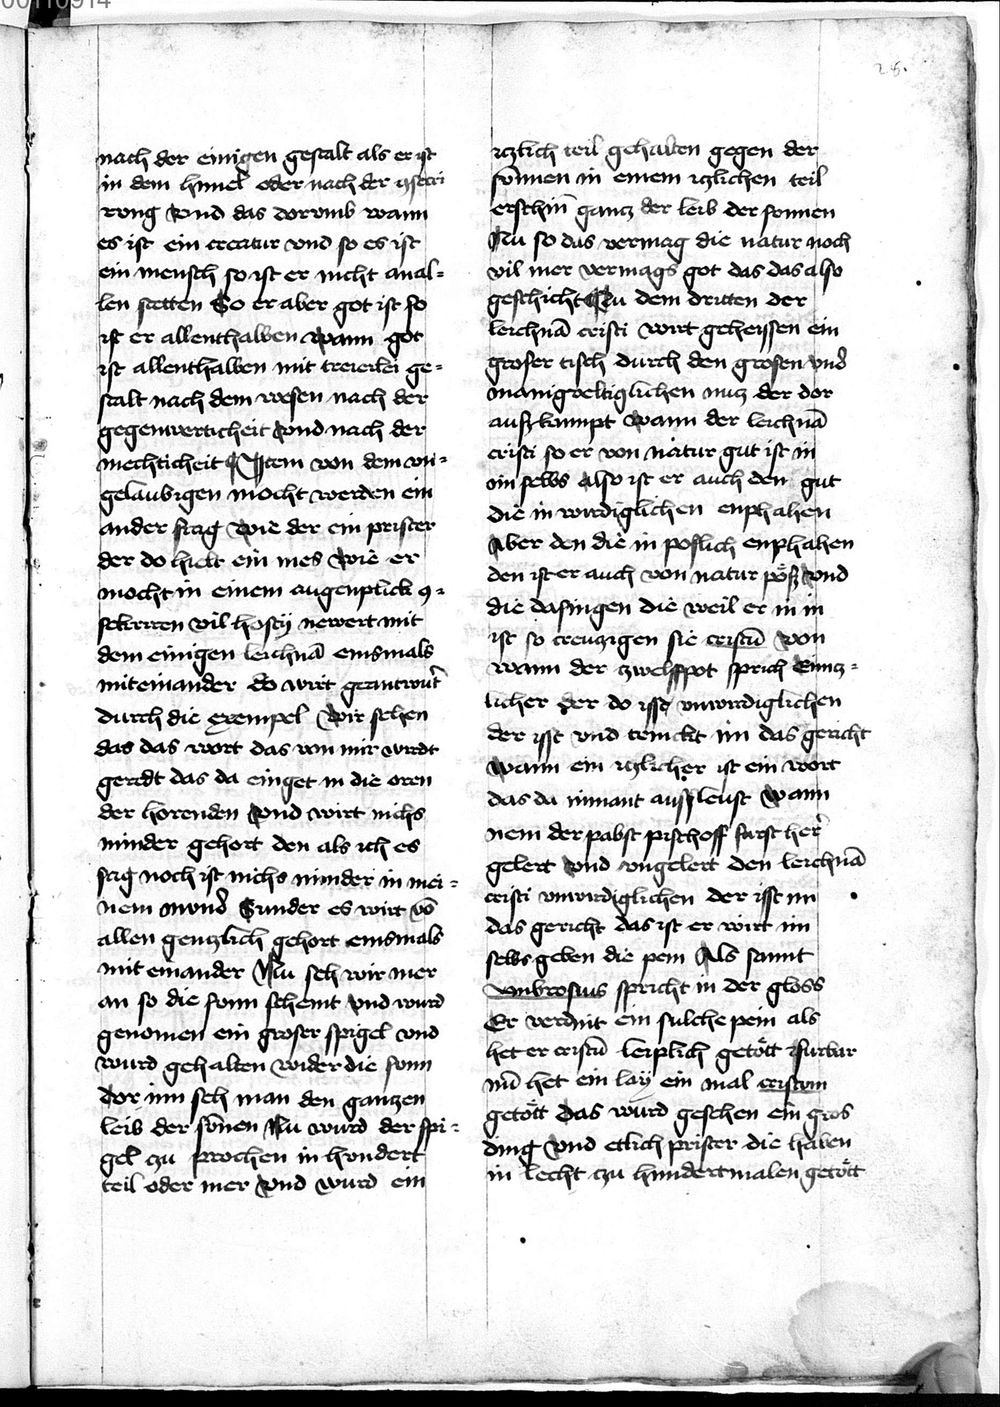 00110914
28.
nach der einigen gestalt als er ist
in dem himel oder nach der 9secri
rung Vnd das dorvmb wann
es ist ein creatur vnd so es ist
ein mensch so ist er nicht anal=
len stetten So er aber got ist so
ist er allenthalben Wann got
ist allenthalben mit treierlei ge=
stalt nach dem wesen nach der
gegenwerticheit Vnd nach der
mechticheit Item von dem vn=
gelaubigen mocht werden ein
ander frag Wie der ein prister
der do hielt ein mes Wie er
mocht in einem augenplick 9=
sekriren vil hostÿ newert mit
dem einigen leichnā einsmals
miteinander do wirt geantwurt
durch die exempel Wir sehen
das das wort das von mir wirdt
geredt das da einget in die oren
der horenden Vnd wirt nichs
minder gehort den als ich es
sag noch ist nichs minder in mei=
nem mund Sunder es wirt vō
allen gentzlich gehort einsmals
mit einander Nu seh wir mer
an so die sonn scheint Vnd wurd
genomen ein groser spigel vnd
wurd gehalten wider die sonn
dor inn seh man den gantzen
leib der sōnen Nu wurd der spi=
gel zu prochen in hundert
teil oder mer Vnd wurd ein
itzlich teil gehalten gegen der
sōnnen in einem itzlichen teil
erschin gantz der leib der sonnen
Nu so das vermag die natur noch
vil mer vermags got das das also
geschicht Zu dem dritten der
leichnā cristi wirt geheissen ein
groser tisch durch den grosen vnd
manigveltiglichen nutz der dor
auß kumpt Wann der leichnā
cristi so er von natur gut ist in
im selbs Also ist er auch den gut
die in wirdiglichen enphahen
Aber den die in poslich enphahen
den ist er auch von natur pöß Vnd
die dasingen die weil er in in
ist so creutzigen sie cristū Von
wann der zwelfpot sprich Eintz=
licher der do isst vnwirdiglichen
der isst vnd trinckt im das gericht
Wann ein itzlicher ist ein wort
das da nimant außsleust Wann
nem der pabst pischoff furst her
gelert Vnd vngelert den leichnā
cristi vnwirdiglichen der isst im
das gericht das ist er wirt im
selbs geben die pein Als sannt
Ambrosius spricht in der gloss
Er verdint ein sulche pein als
het er cristū leiplich getött
nū het ein laÿ ein mal cristum
getött Das wurd gesehen ein gros
ding Vnd etlich prister die haben
in lecht zu hundertmalen getött